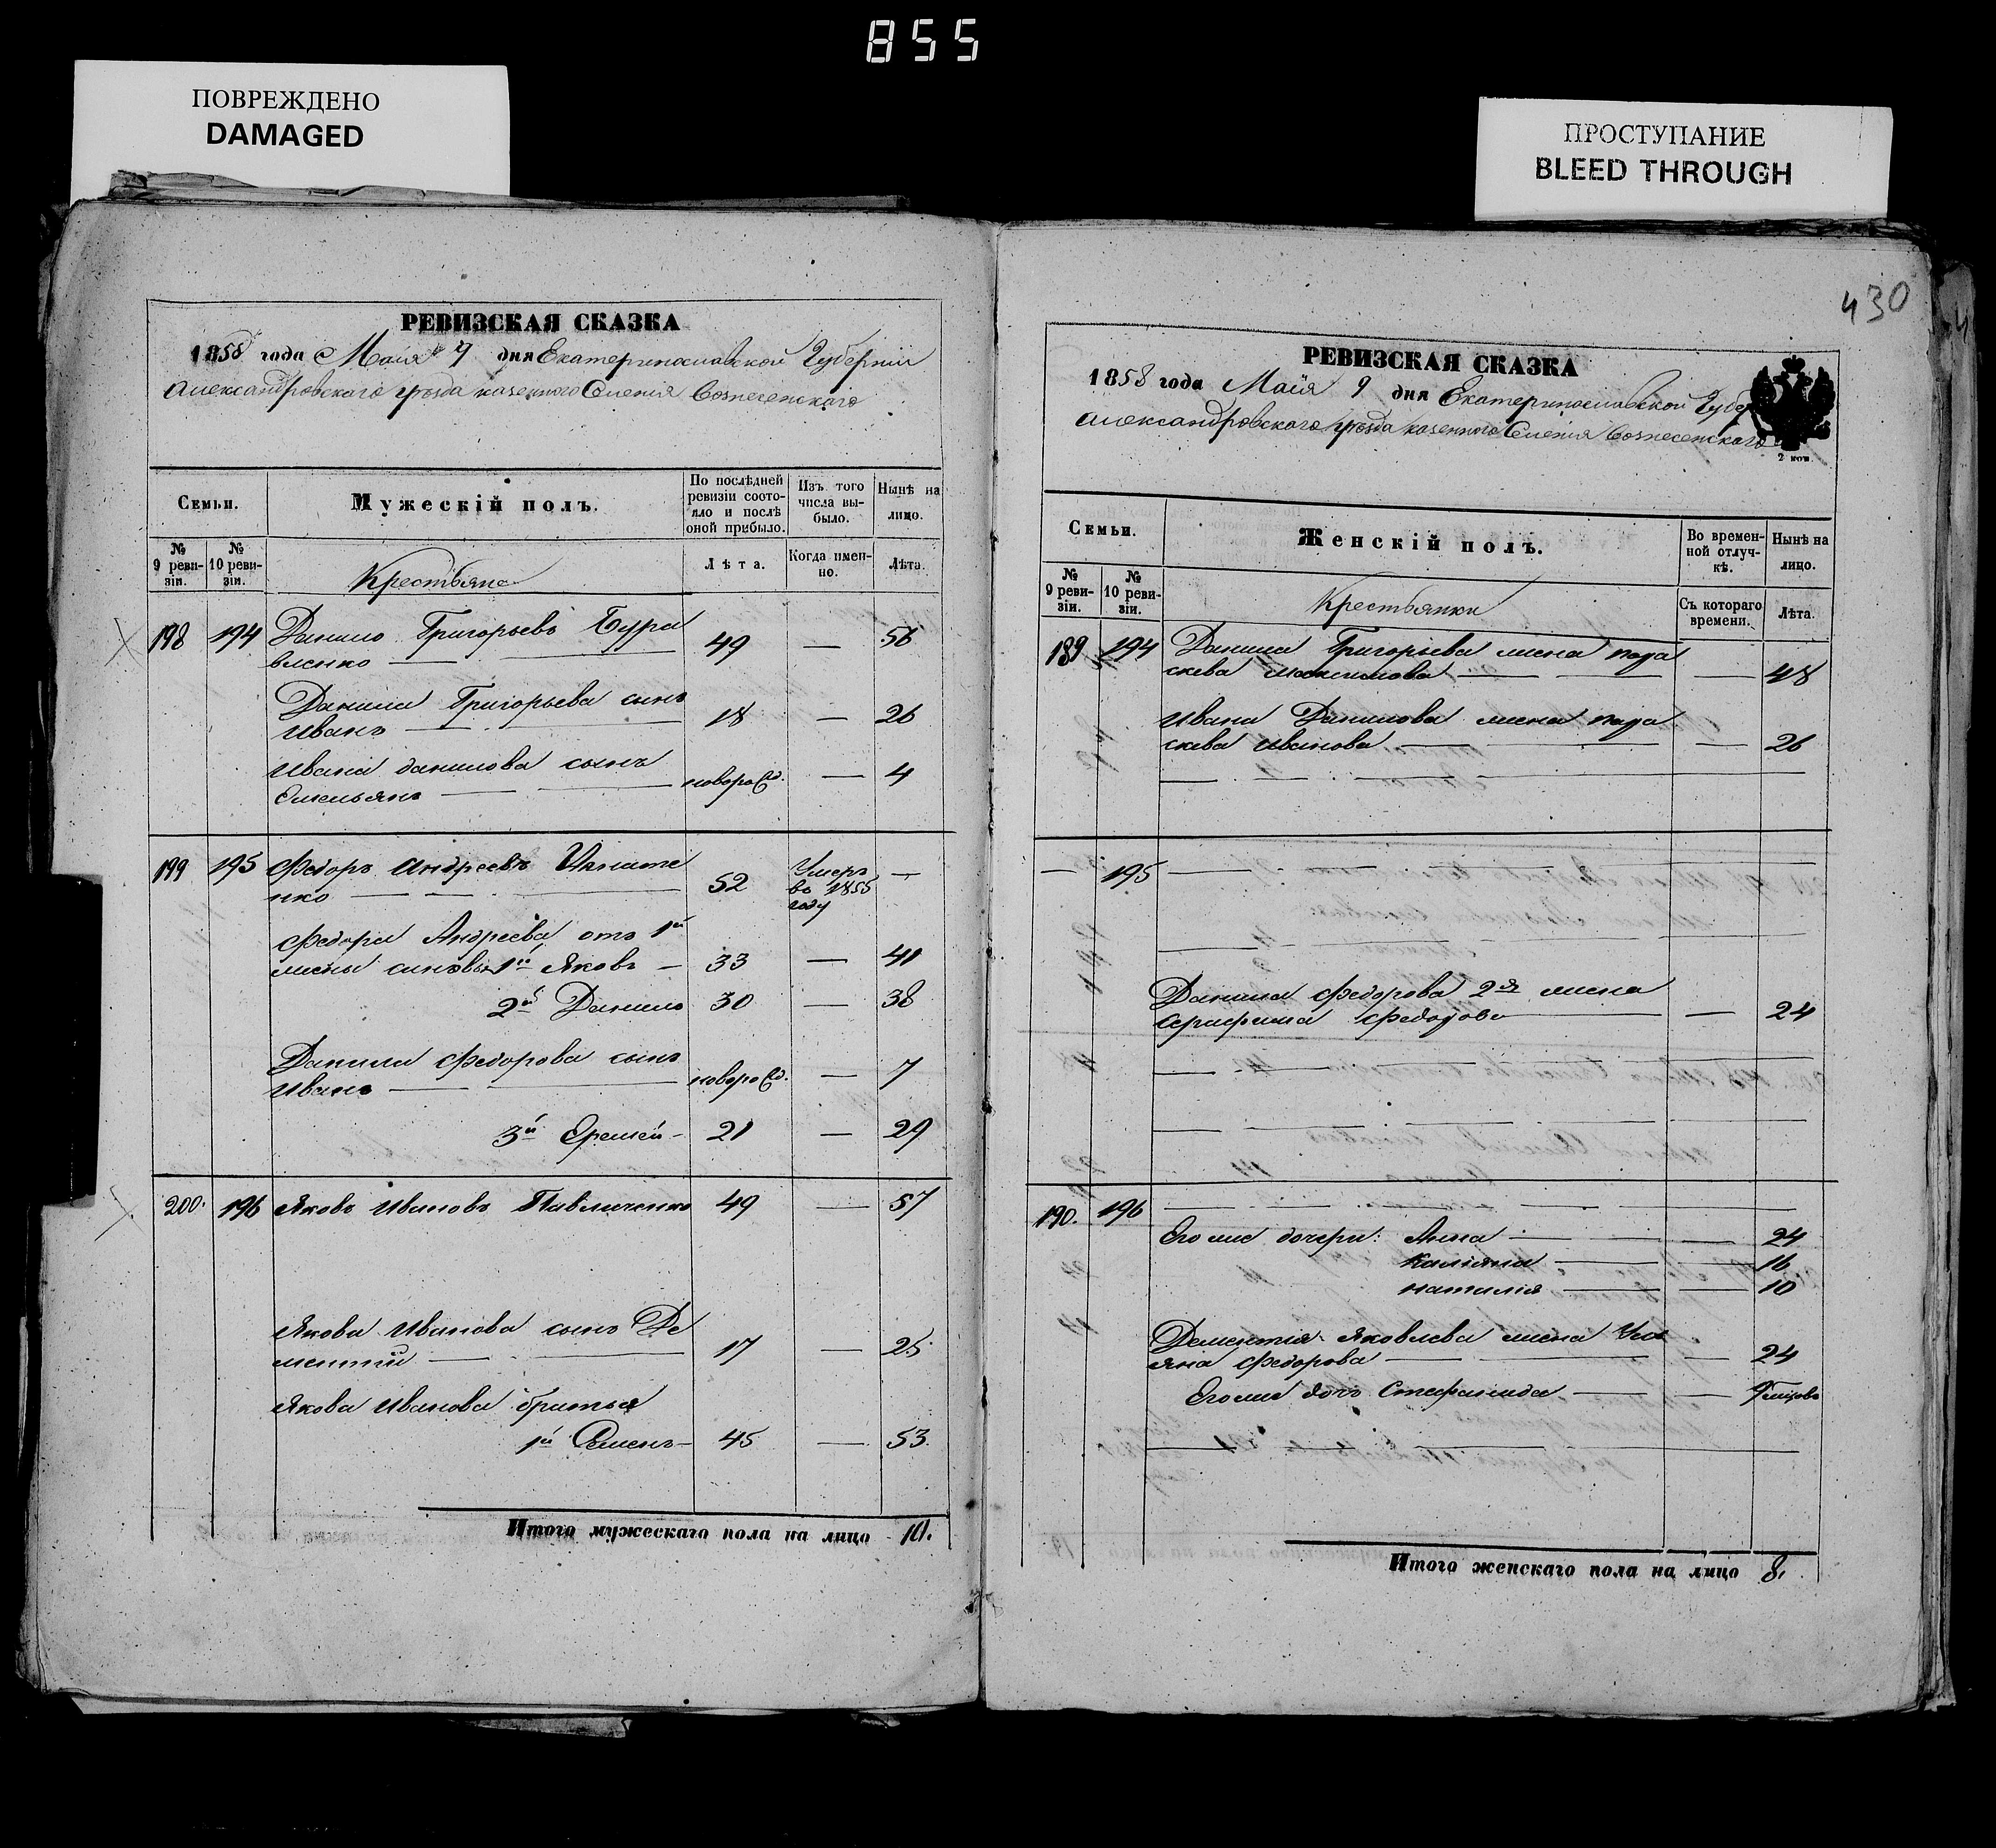 855
ПОВРЕЖДЕНО
DAMAGED
ПРОСТУПАНИЕ
BLEED THROUGH
РЕВИЗСКАЯ СКАЗКА
1858 года Маія 9 дня Екатеринославской Губерніи
Александровскаго уѣзда казеннаго Селенія Вознесенскаго
Семьи.
Мужескій полъ.
По послѣдней ревизіи состояло и послѣ оной прибыло.
Изъ того числа выбыло.
Нынѣ на лицо.
№ 9 ревизіи.
№ 10 ревизіи.
Крестьяне
Лѣта.
Когда именно.
Лѣта.
198 194 Данило Григорьевъ Бура
вленко — 49 — 56
Данила Григорьева сынъ
Иванъ — 18 — 26
Ивана Данилова сынъ
Емельянъ — новорожд. — 4
199 195 Федоръ Андреевъ Игнате
нко — 52 Умеръ въ 1855 году —
Федора Андреева отъ 1й
жены сыновья 1й Яковъ — 33 — 41
2й Данило 30 — 38
Данила Федорова сынъ
Иванъ — новорожд. — 7
3й Еремей — 21 — 29
200. 196 Яковъ Ивановъ Павличенко 49 — 57
Якова Иванова сынъ Де
ментій — 17 — 25
Якова Иванова братья
1й Семенъ — 45 — 53.
Итого мужескаго пола на лицо 10.
430
РЕВИЗСКАЯ СКАЗКА
1858 года Маія 9 дня Екатеринославской Губер
Александровскаго уѣзда казеннаго Селенія Вознесенскаго
2 коп.
Семьи.
Женскій полъ.
Во временной отлучкѣ.
Нынѣ на лицо.
№ 9 ревизіи.
№ 10 ревизіи.
Крестьянки
Съ котораго времени.
Лѣта.
189 194 Данила Григорьева жена Пара
скева Максимова — — 48
Ивана Данилова жена Пара
скева Иванова — — 26
— 195 —
Данила Федорова 2я жена
Серафима Федорова — — 24
190. 196 —
Его же дочери: Анна — — 24
— 16
Наталія — — 10
Дементія Яковлева жена Уль
яна Федорова — — 24
Его же дочь Стефанида — — 9 мѣсяцовъ
Итого женскаго пола на лицо 8.